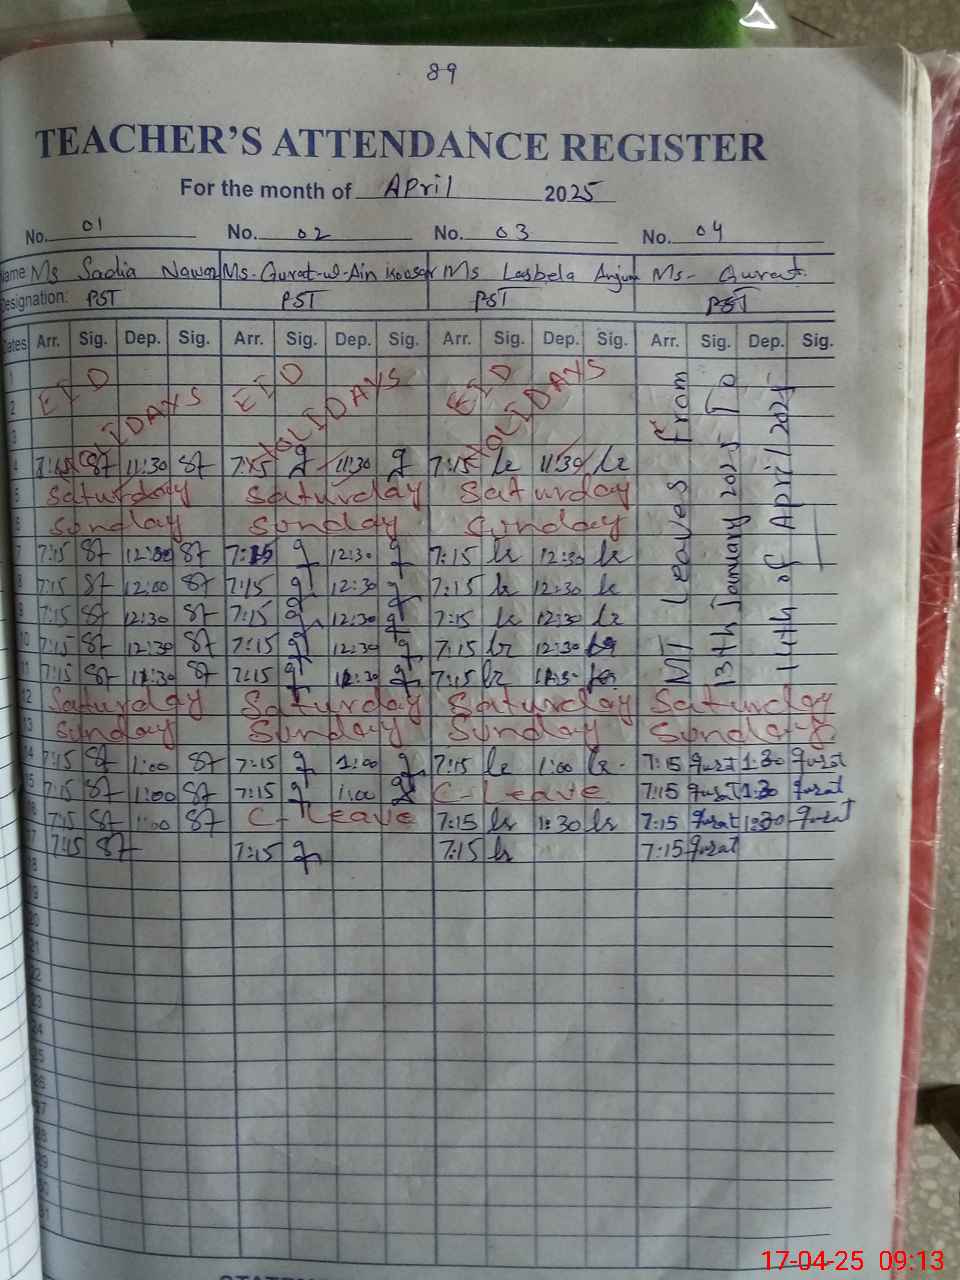 89
TEACHER'S ATTENDANCE REGISTER
For the month of April 2025
No. 01 No. 02 No. 03 No. 04
Name Ms Sadia Nawaz Ms- Qurat-ul-Ain Ms Lasbela Anjum Ms- Qurat.
Designation: PST PST PST PST
Dates Arr. Sig. Dep. Sig. Arr. Sig. Dep. Sig. Arr. Sig. Dep. Sig. Arr. Sig. Dep. Sig.
1 EID HOLIDAYS EID HOLIDAYS EID HOLIDAYS
2
3
MT Leaves From
13th January 2025 To
14th of April 2025
4 11:30 7:15 11:30 7:15 lr 11:30 lr
5 Saturday Saturday Saturday
6 Sunday Sunday Sunday
7 7:15 12:00 7:15 12:30 7:15 lr 12:30 lr
8 7:15 12:00 7:15 12:30 7:15 lr 12:30 lr
9 7:15 12:30 7:15 12:30 7:15 lr 12:30 lr
10 7:15 12:30 7:15 12:30 7:15 lr 12:30
11 7:15 7:15 7:15 lr
12 Saturday Saturday Saturday Saturday
13 Sunday Sunday Sunday Sunday
14 7:15 1:00 7:15 1:00 7:15 lr 1:00 lr 7:15 Qurat 1:30 Qurat
15 7:15 1:00 7:15 1:00 C-Leave 7:15 Qurat 1:30 Qurat
16 7:15 1:00 C-Leave 7:15 lr 1:30 lr 7:15 Qurat 1:30 Qurat
17 7:15 7:15 7:15 lr 7:15 Qurat
18
19
20
21
22
23
24
25
26
27
28
29
30
31
17-04-25 09:13